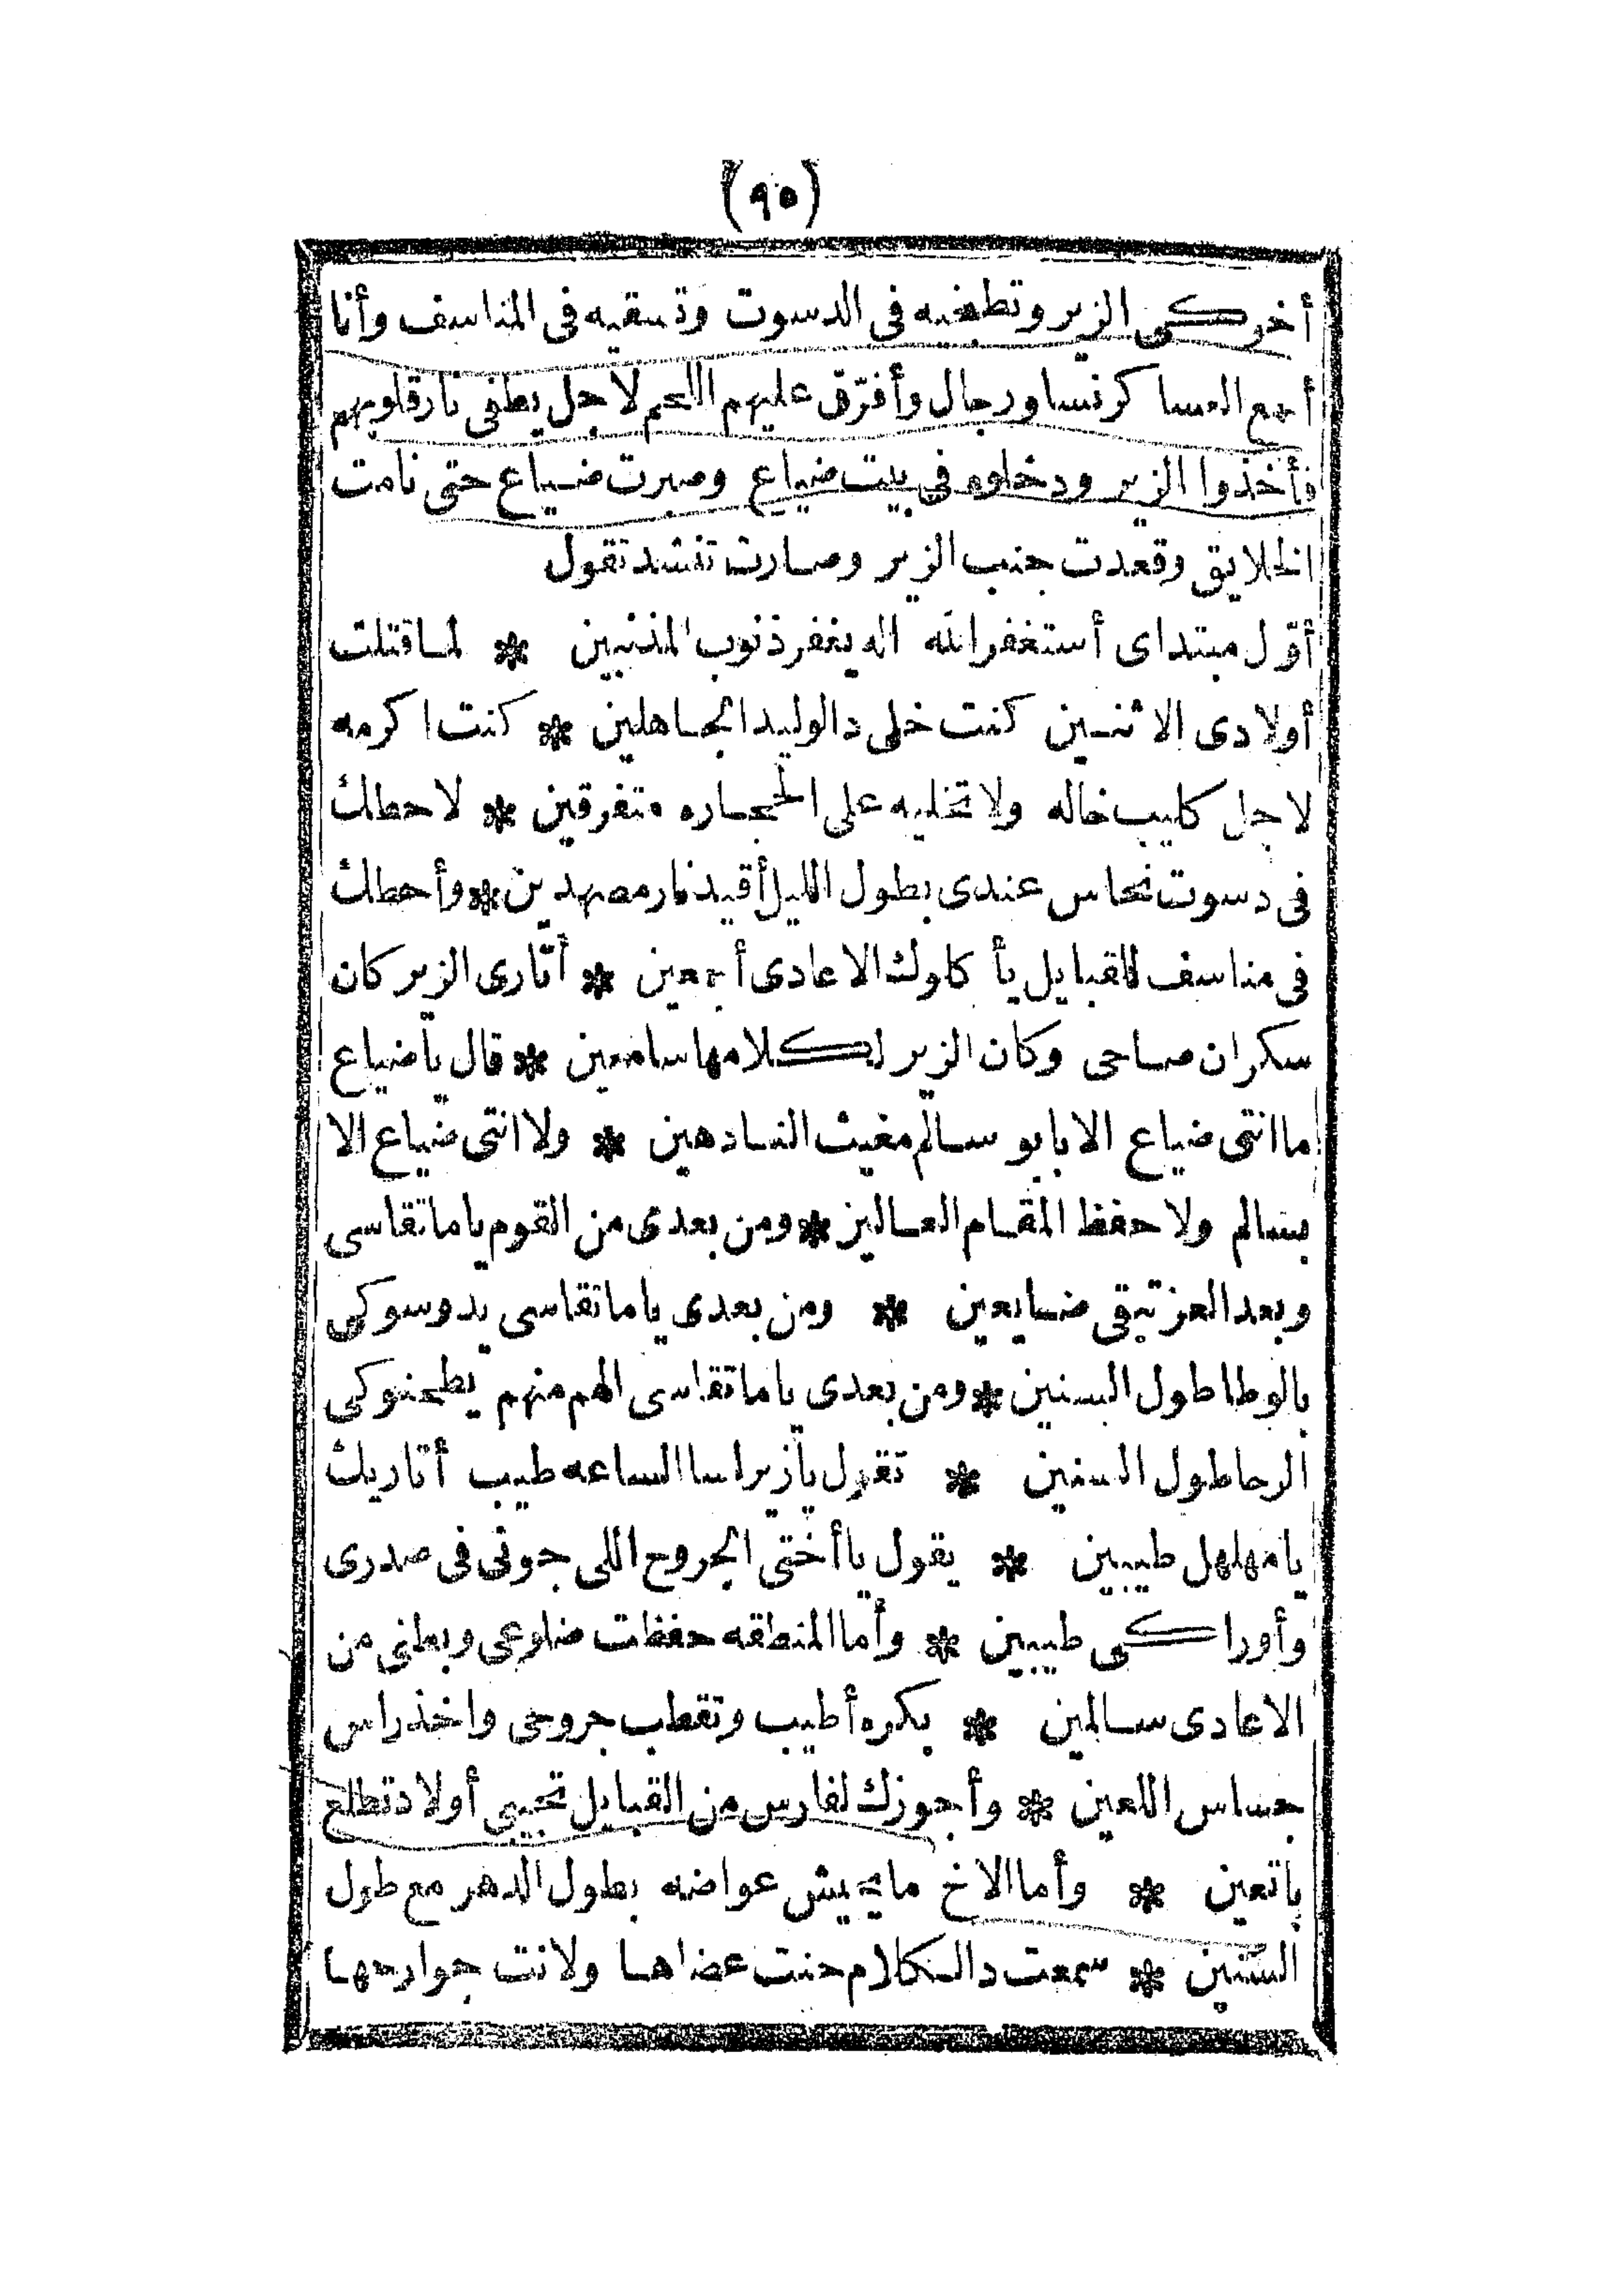 (٩٥)
أخوكى الزير وتطبخيه فى الدسوت وتسقيه فى المناسف وأنا
أجمع العساكر نسا ورجال وأفرّق عليهم اللحم لاجل يطفى نار قلوبهم
فأخذوا الزير ودخلوه فى بيت ضباع وصبرت ضباع حتى نامت
الخلايق وقعدت جنب الزير وصارت تنشد تقول
أوّل مبتداى أستغفر الله اله يغفر ذنوب المذنبين * لما قتلت
أولادى الاثنين كنت خلى دا الوليد الجاهلين * كنت اكرمه
لاجل كليب خاله ولا تخليه على الحجاره متفرقين * لاحطك
فى دسوت نحاس عندى بطول الليل أقيد نار مصهدين * وأحطك
فى مناسف للقبايل يأكلوك الاعادى أجمعين * أتارى الزير كان
سكران صاحى وكان الزير لكلامها سامعين * قال يا ضباع
ما انتى ضباع الا بابو سالم مغيث الندهين * ولا انتى ضباع الا
بسالم ولا حفظ المقام العالين * ومن بعدى من القوم ياما تقاسى
وبعد العز تبقى ضايعين * ومن بعدى ياما تقاسى يدوسوكى
بالوطا طول السنين * ومن بعدى ياما تقاسى الهم منهم يطحنوكى
الرحا طول السنين * تقول يا زير اسا الساعه طيب أتاريك
يا مهلهل طيبين * يقول يا أختى الجروح اللى جونى فى صدرى
وأوراكى طيبين * وأما المنطقه حفظت ضلوعى وبطنى من
الاعادى سالمين * بكره أطيب وتقطب جروحى واخذ راس
جساس اللعين * وأجوزك لفارس من القبايل تجيبى أولاد تطلع
باتعين * وأما الاخ ما يجيش عواضه بطول الدهر مع طول
السنين * سمعت دا الكلام حنت عضاها ولانت جوارحها